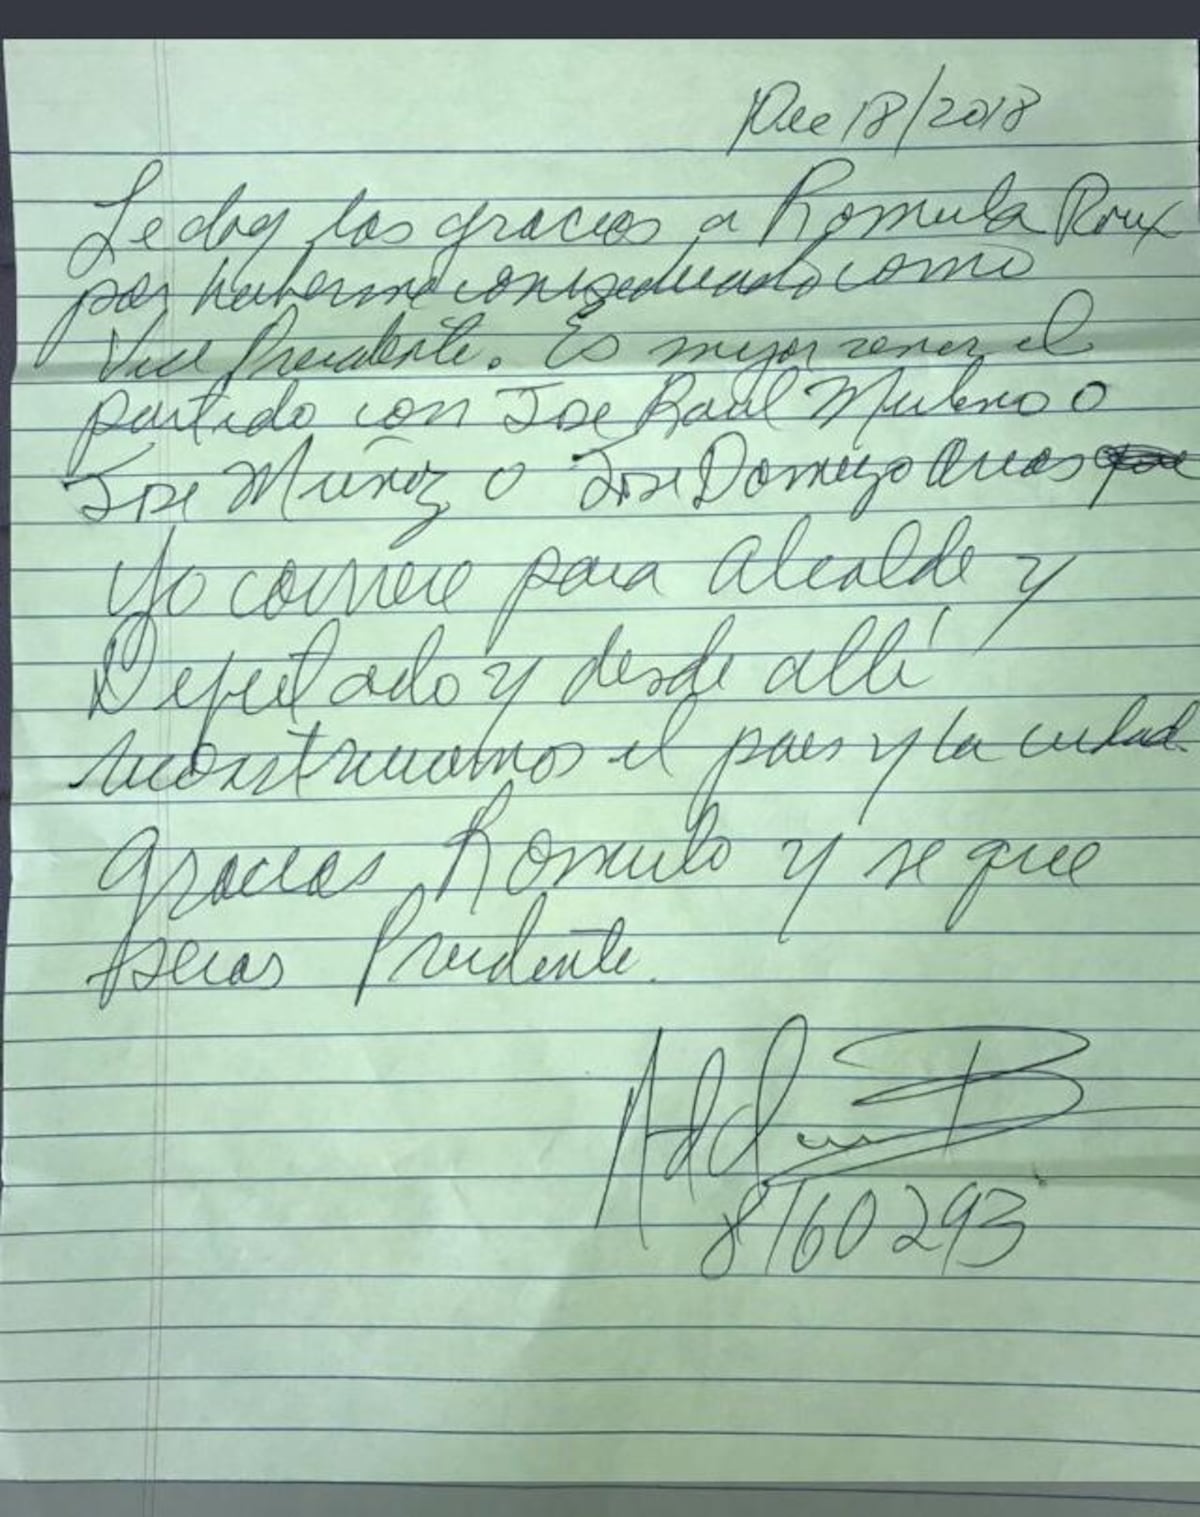 Dec 18/2018
Le doy las gracias a Romulo Roux
por haberme considerado como
Vice Presidente. Es mejor cerrar el
partido con Jose Raul Mulino o
Jose Muñoz o Jose Domingo Arias
Yo correre para alcalde y
Diputado y desde allí
reconstruiamos el pais y la ciudad.
Gracias Romulo y se que
seras Presidente.
8160293